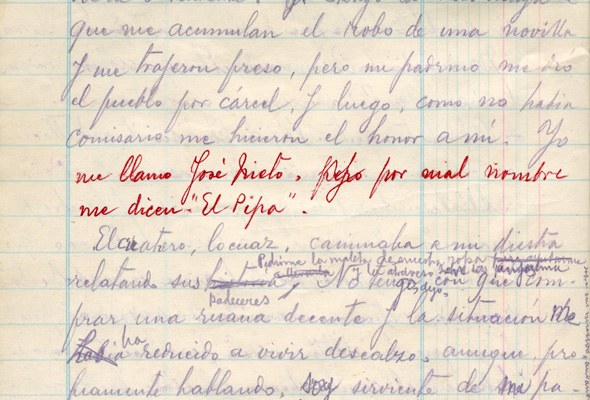 que me acumulan el robo de una novilla
y me trajeron preso, pero mi padrino me dió
el pueblo por cárcel y luego, como no había
Comisario me hicieron el honor a mí. Yo
me llamo José Nieto, pero por mal nombre
me dicen "El Pipa".
El cuatrero, locuaz, caminaba a mi diestra
Pidióme la maleta de nuestra ropa
relatando sus padeceres, No tengo con que com-
prar una ruana decente y la situación me
ha reducido a vivir descalzo, aunque, pro
piamente hablando, soy sirviente de mi pa-